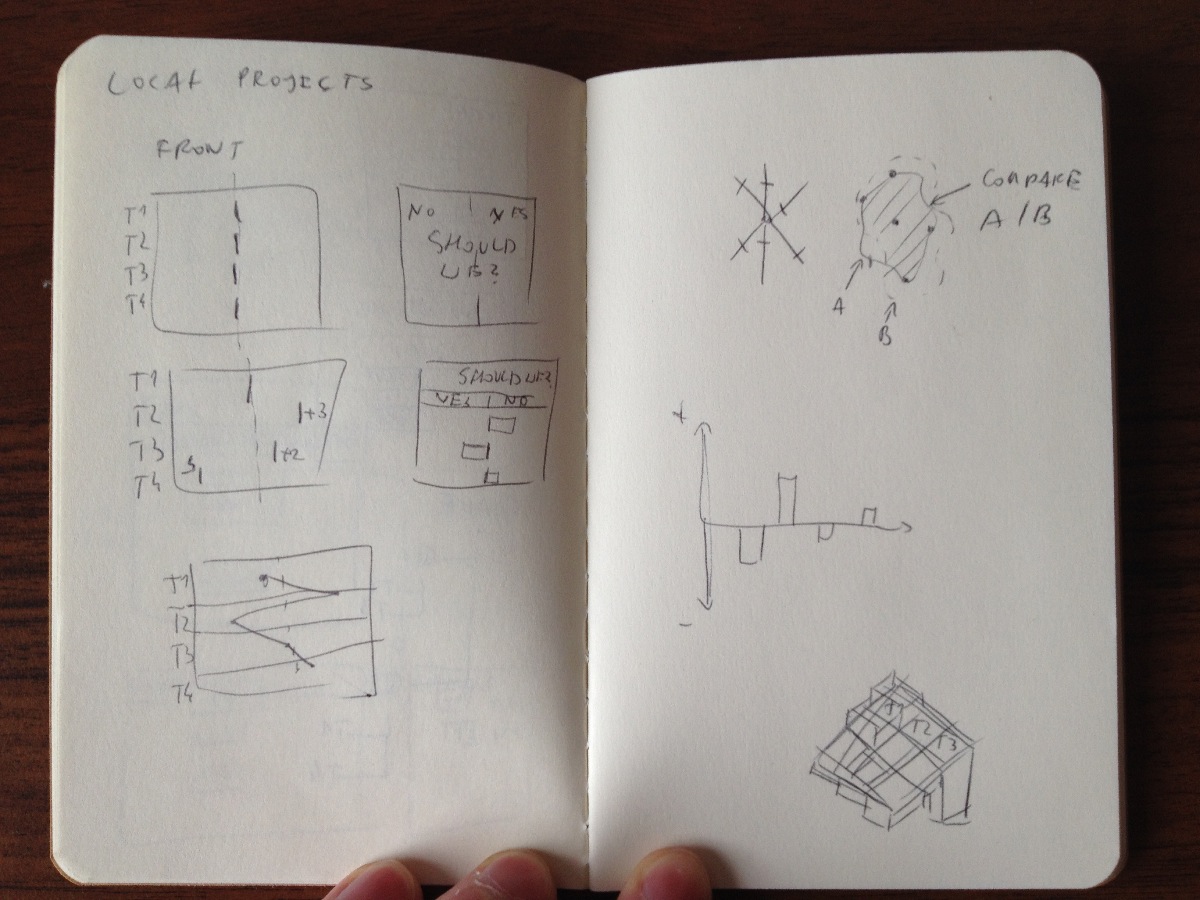 LOCAL PROJECTS
FRONT
T1
T2
T3
T4
NO YES
SHOULD
WE?
T1
T2
T3
T4
1+3
1+2
S1
SHOULD WE?
YES NO
T1
T2
T3
T4
COMPARE
A/B
A
B
+
-
T1
T2
T3